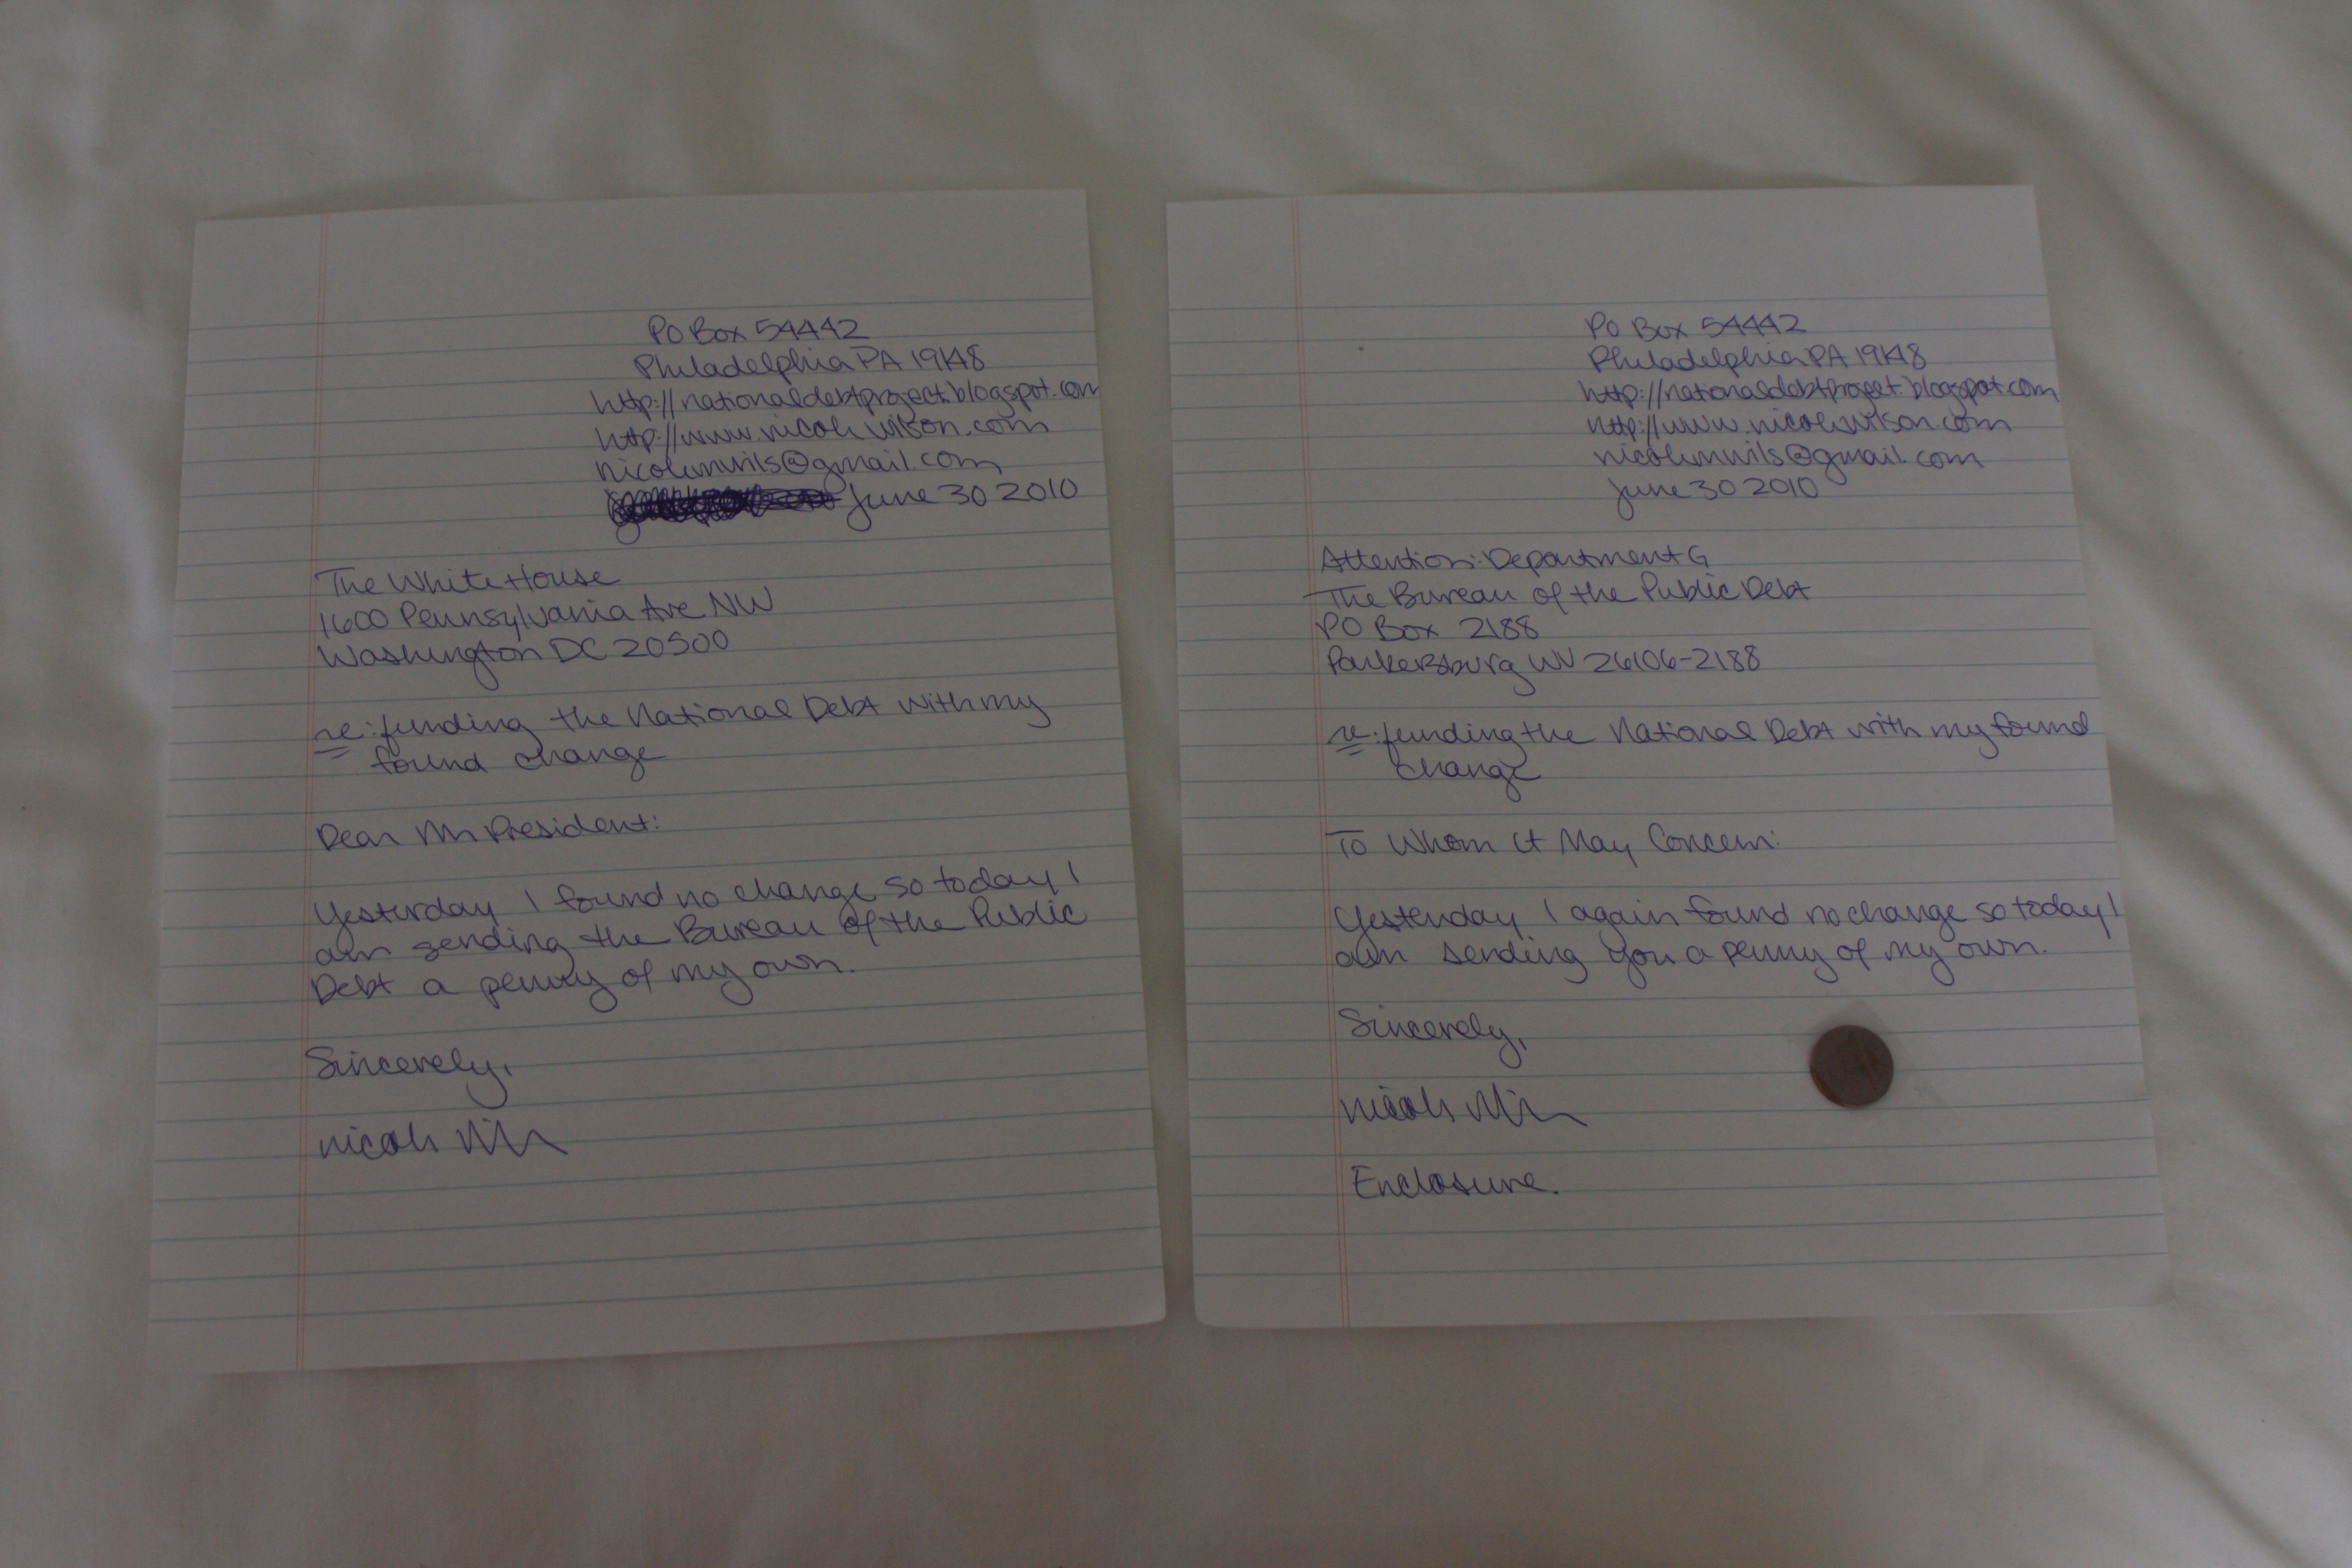 PO Box 54442
Philadelphia PA 19148
http://nationaldebtproject.blogspot.com
http://www.nicolewilson.com
nicolemwils@gmail.com
June 30 2010
The White House
1600 Pennsylvania Ave NW
Washington DC 20500
re: funding the National Debt with my
found change
Dear Mr President:
Yesterday I found no change so today I
am sending the Bureau of the Public
Debt a penny of my own.
Sincerely,
Nicole Wilson
PO Box 54442
Philadelphia PA 19148
http://nationaldebtproject.blogspot.com
http://www.nicolewilson.com
nicolemwils@gmail.com
June 30 2010
Attention: Department G
The Bureau of the Public Debt
PO Box 2188
Parkersburg WV 26106-2188
re: funding the National Debt with my found
change
To Whom It May Concern:
Yesterday I again found no change so today I
am sending you a penny of my own.
Sincerely,
Nicole Wilson
Enclosure.